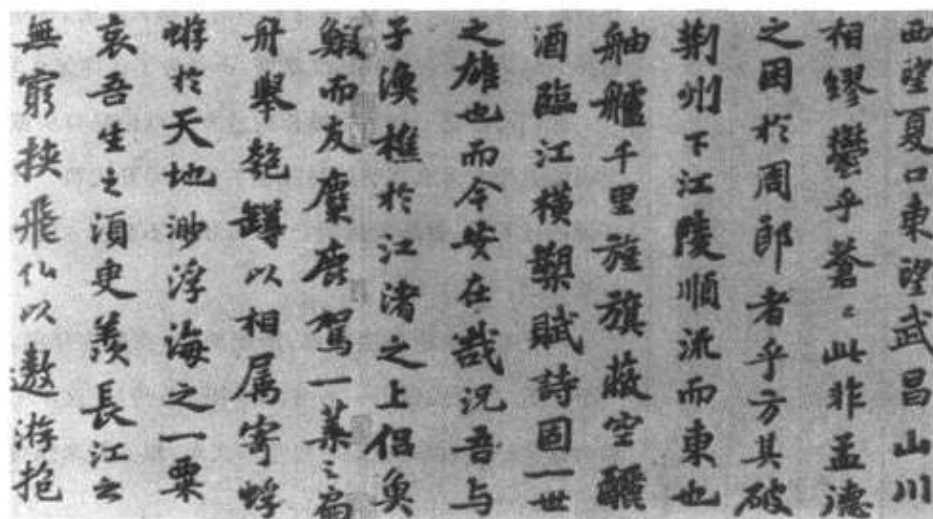 西望夏口東望武昌山川
相繆鬱乎蒼〻此非孟德
之困於周郎者乎方其破
荆州下江陵順流而東也
舳艫千里旌旗蔽空釃
酒臨江横槊賦詩固一世
之雄也而今安在哉況吾与
子漁樵於江渚之上侣魚
鰕而友麋鹿駕一葉之扁
舟舉匏罇以相属寄蜉
蝣於天地渺浮海之一粟
哀吾生之須臾羨長江之
無窮挾飛仙以遨游抱